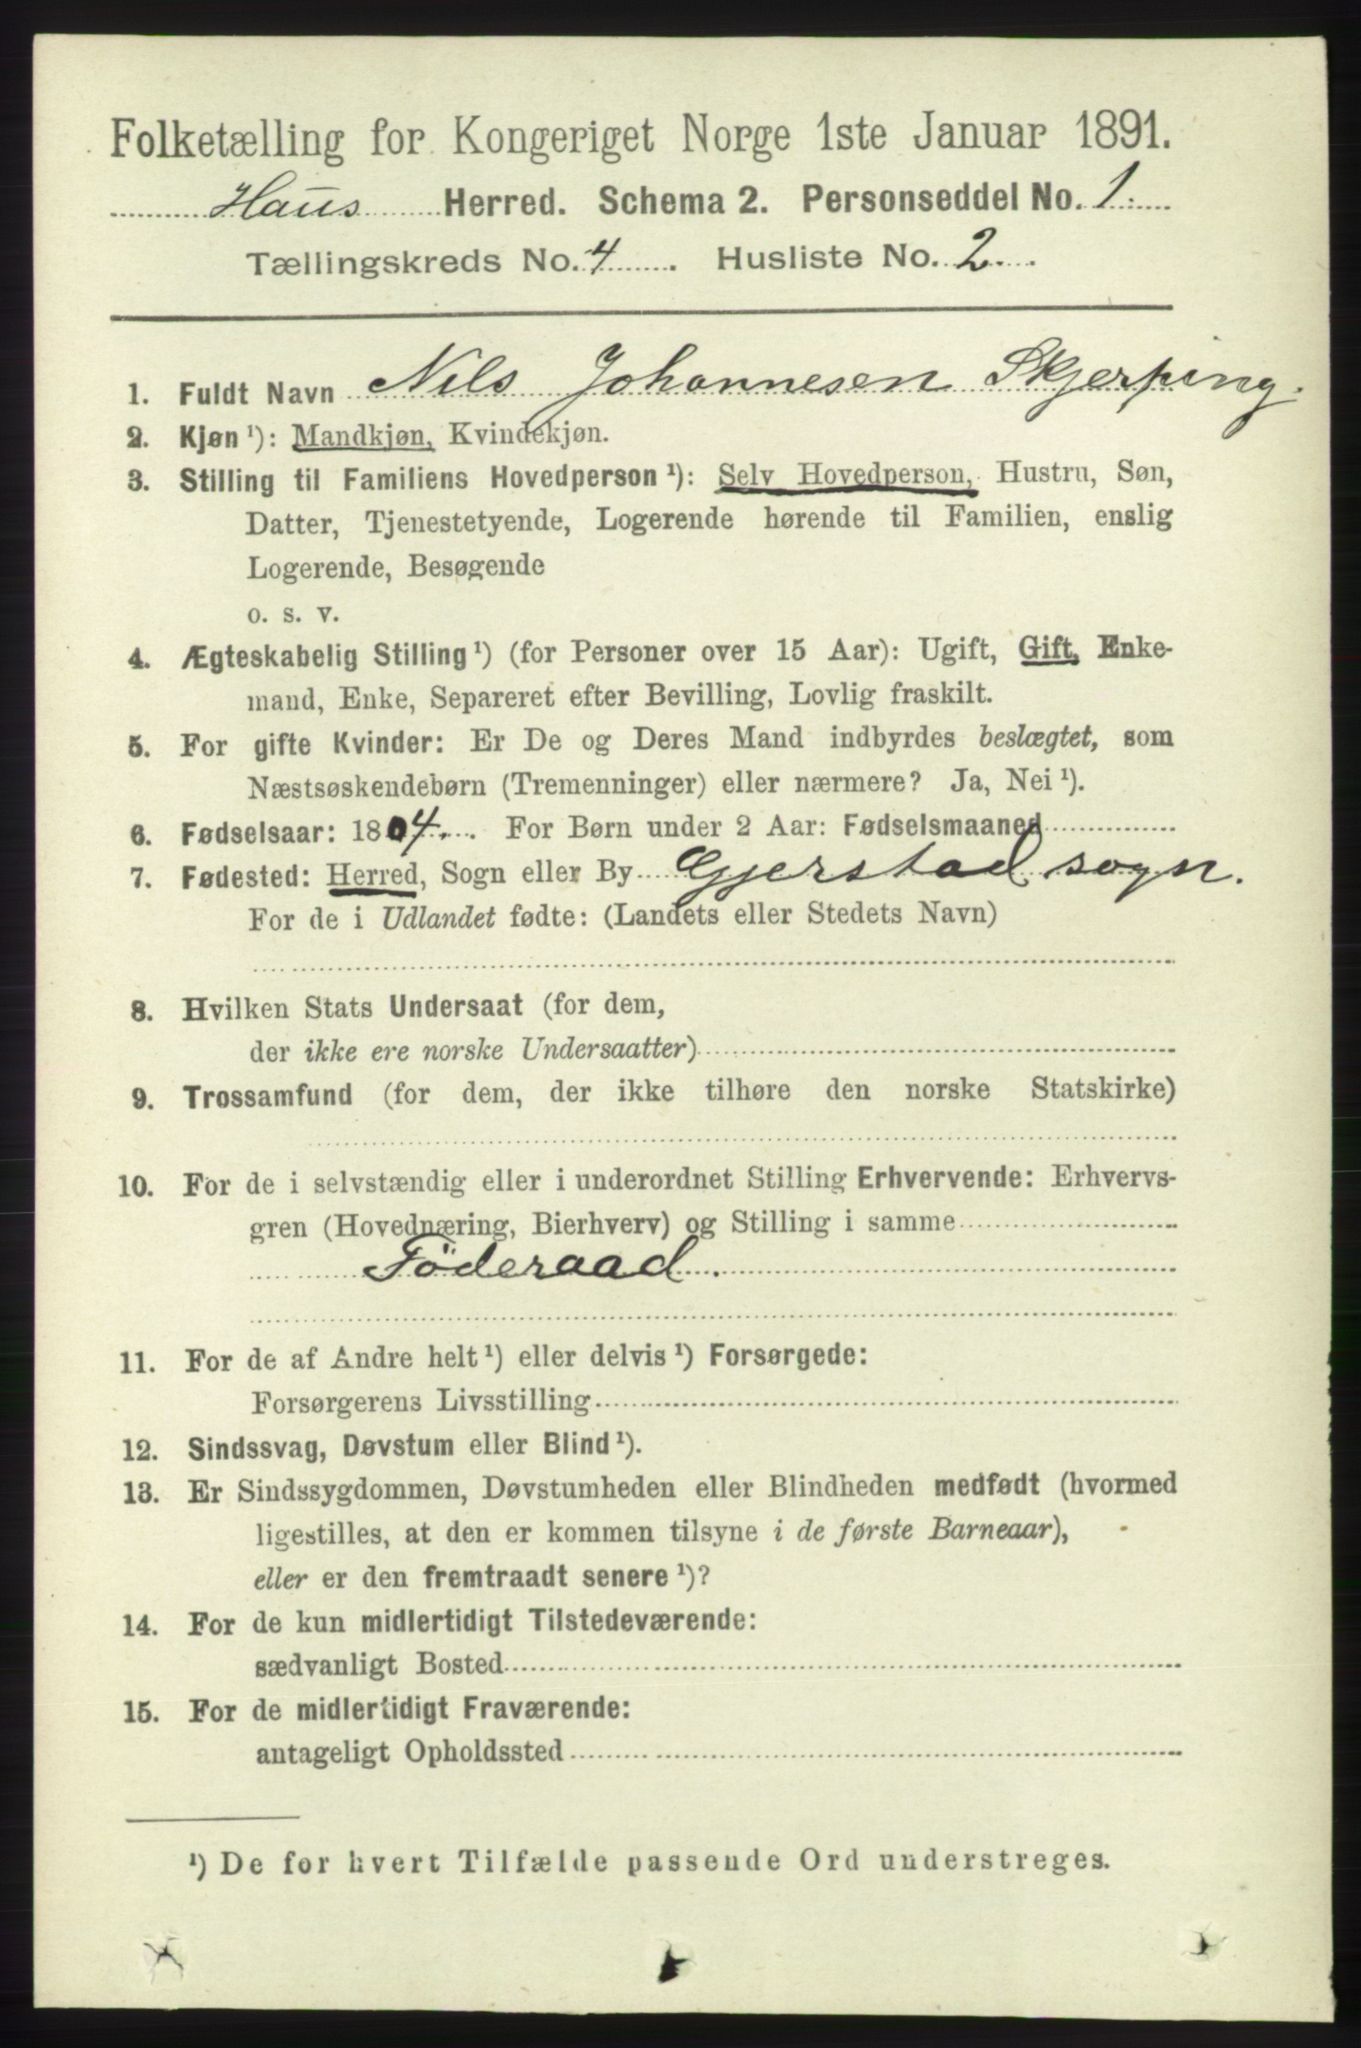 Folketælling for Kongeriget Norge 1ste Januar 1891.
Haus Herred. Schema 2. Personseddel No. 1.
Tællingskreds No. 4. Husliste No. 2.
1. Fuldt Navn Nils Johannesen Skjerping.
2. Kjøn ¹): Mandkjøn, Kvindekjøn.
3. Stilling til Familiens Hovedperson ¹): Selv Hovedperson, Hustru, Søn,
Datter, Tjenestetyende, Logerende hørende til Familien, enslig
Logerende, Besøgende
o. s. v.
4. Ægteskabelig Stilling ¹) (for Personer over 15 Aar): Ugift, Gift, Enke-
mand, Enke, Separeret efter Bevilling, Lovlig fraskilt.
5. For gifte Kvinder: Er De og Deres Mand indbyrdes beslægtet, som
Næstsøskendebørn (Tremenninger) eller nærmere? Ja, Nei ¹).
6. Fødselsaar: 1804. For Børn under 2 Aar: Fødselsmaaned
7. Fødested: Herred, Sogn eller By Gjerstad sogn.
For de i Udlandet fødte: (Landets eller Stedets Navn)
8. Hvilken Stats Undersaat (for dem,
der ikke ere norske Undersaatter)
9. Trossamfund (for dem, der ikke tilhøre den norske Statskirke)
10. For de i selvstændig eller i underordnet Stilling Erhvervende: Erhvervs-
gren (Hovednæring, Bierhverv) og Stilling i samme
Föderaad.
11. For de af Andre helt ¹) eller delvis ¹) Forsørgede:
Forsørgerens Livsstilling
12. Sindssvag, Døvstum eller Blind ¹).
13. Er Sindssygdommen, Døvstumheden eller Blindheden medfødt (hvormed
ligestilles, at den er kommen tilsyne i de første Barneaar),
eller er den fremtraadt senere ¹)?
14. For de kun midlertidigt Tilstedeværende:
sædvanligt Bosted
15. For de midlertidigt Fraværende:
antageligt Opholdssted
¹) De for hvert Tilfælde passende Ord understreges.